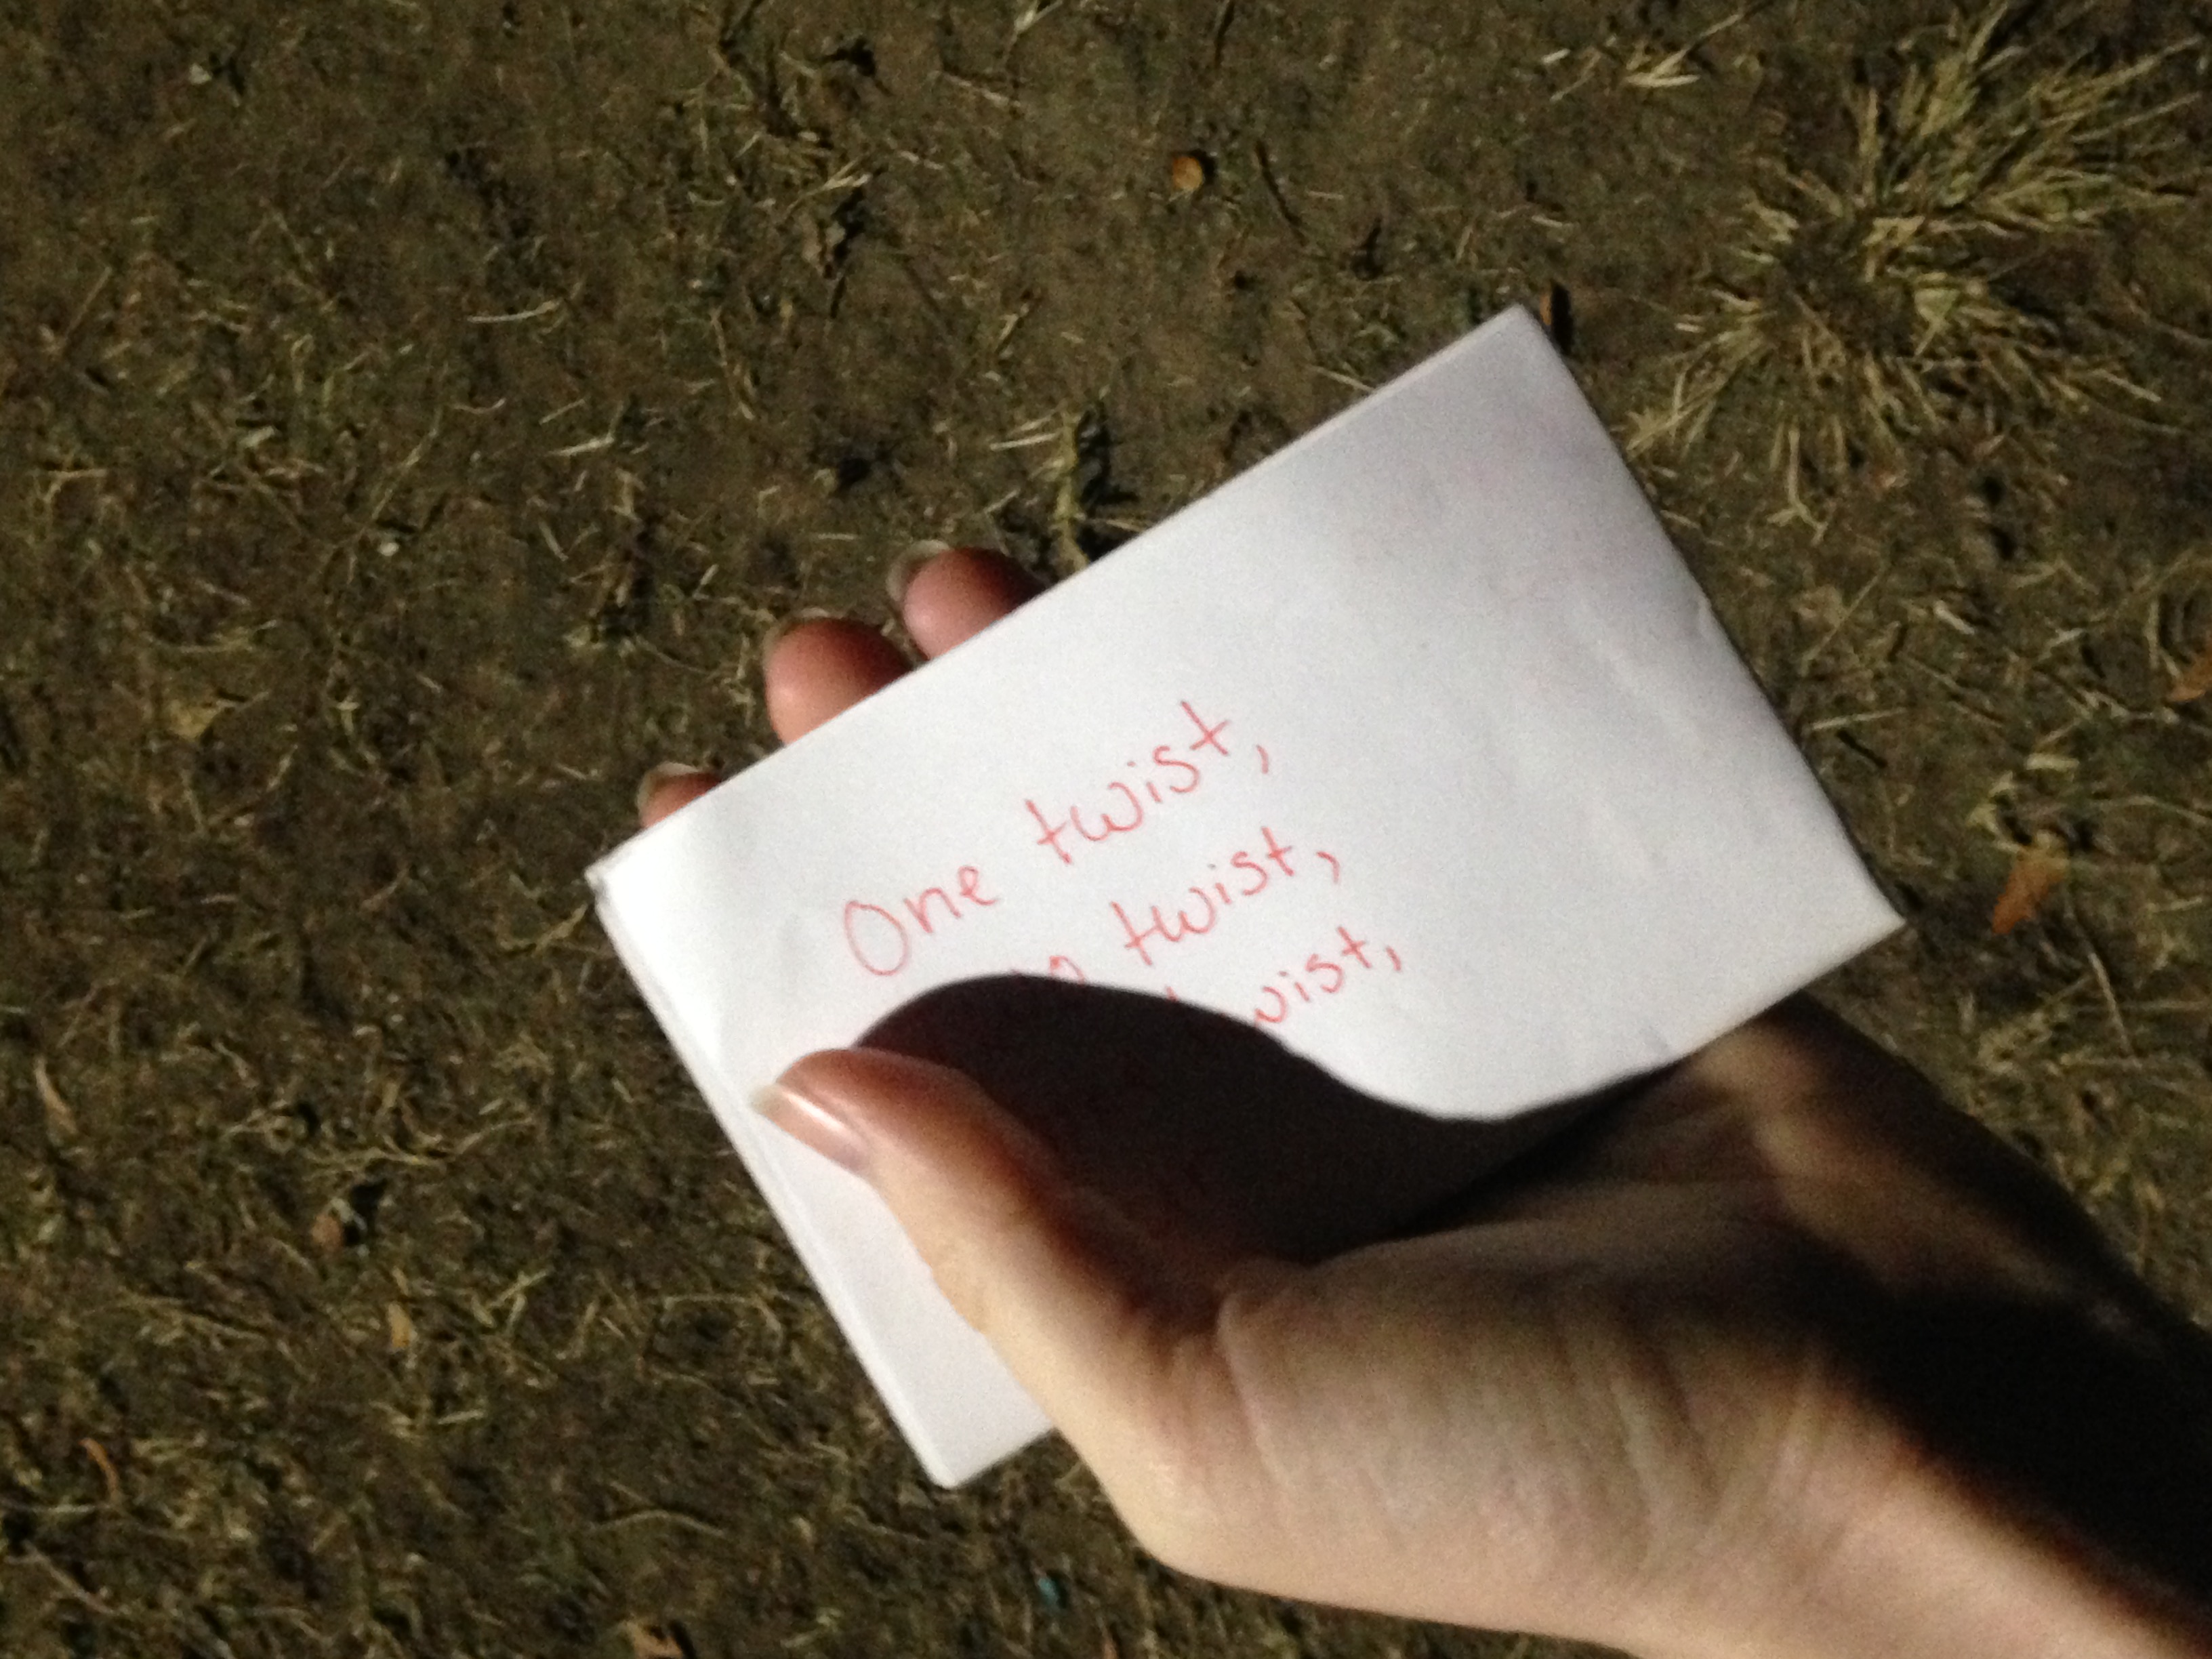 One twist,
twist,
twist,